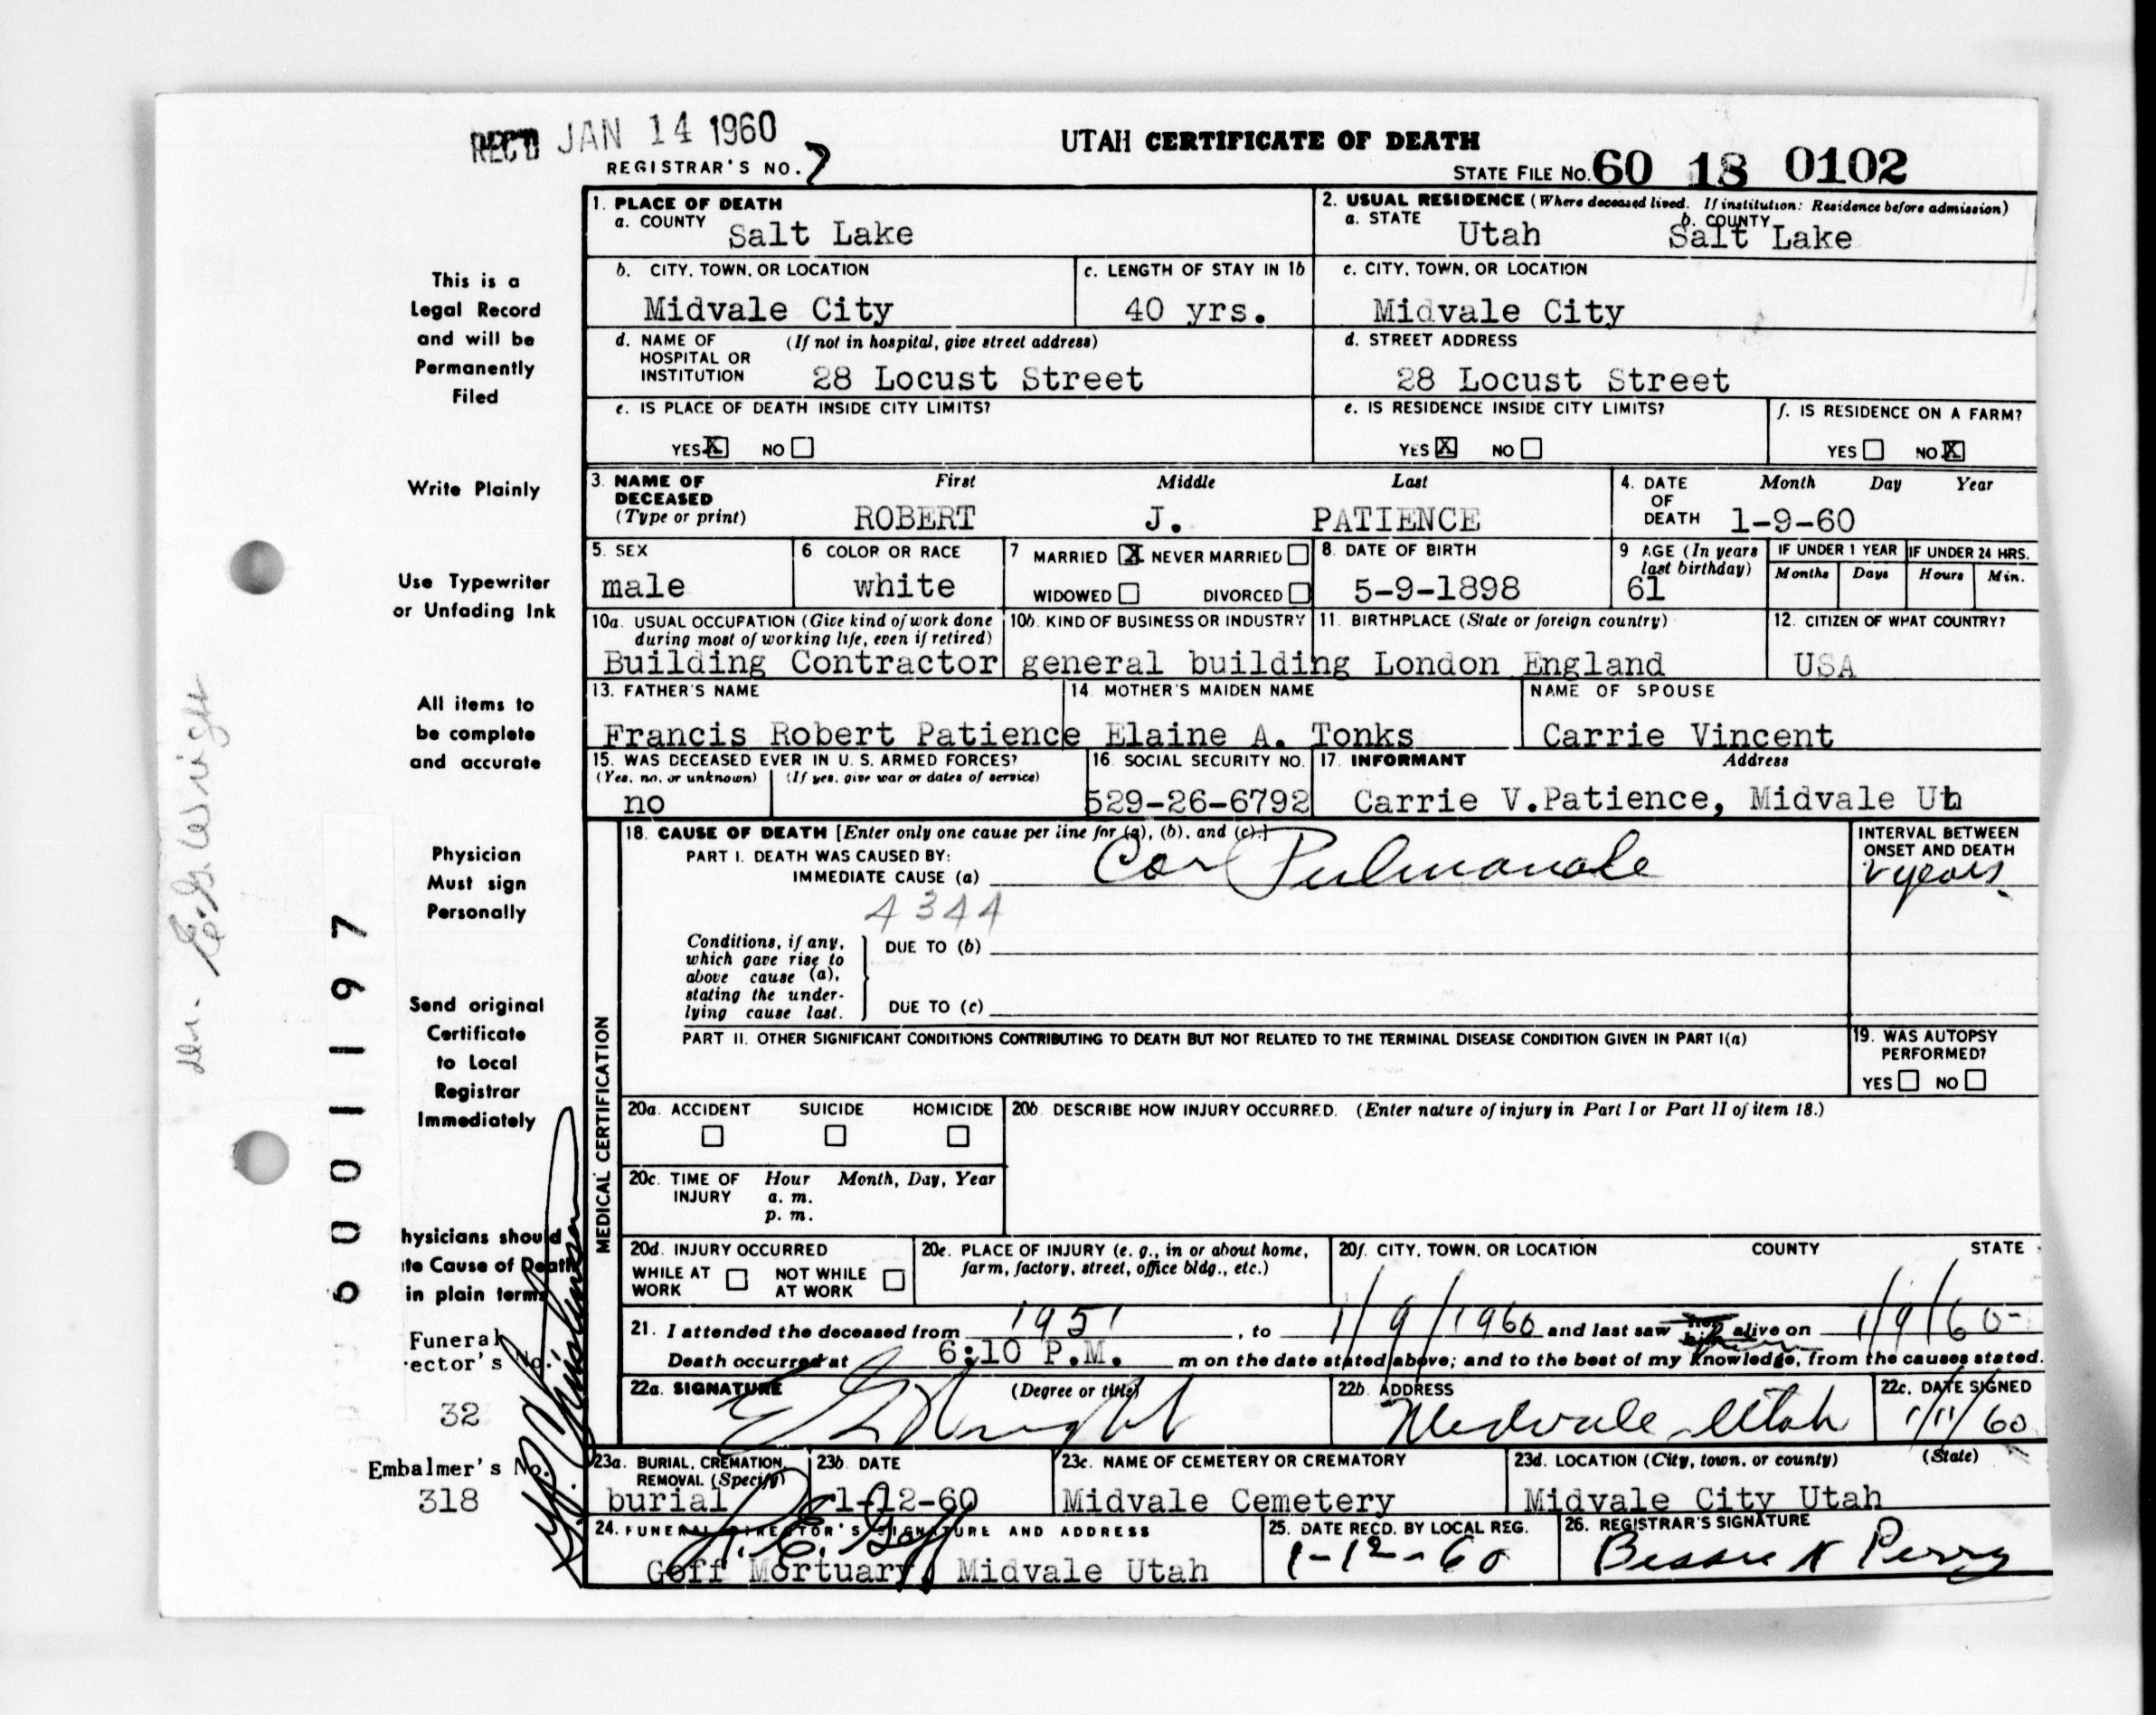 REC'D JAN 14 1960
REGISTRAR'S NO. 7
UTAH CERTIFICATE OF DEATH
STATE FILE NO. 60 18 0102
1. PLACE OF DEATH
a. COUNTY Salt Lake
2. USUAL RESIDENCE (Where deceased lived. If institution: Residence before admission)
a. STATE Utah b. COUNTY Salt Lake
b. CITY, TOWN, OR LOCATION
Midvale City
c. LENGTH OF STAY IN 1b
40 yrs.
c. CITY, TOWN, OR LOCATION
Midvale City
d. NAME OF HOSPITAL OR INSTITUTION (If not in hospital, give street address)
28 Locust Street
d. STREET ADDRESS
28 Locust Street
e. IS PLACE OF DEATH INSIDE CITY LIMITS?
YES X NO
e. IS RESIDENCE INSIDE CITY LIMITS?
YES X NO
f. IS RESIDENCE ON A FARM?
YES NO X
3. NAME OF DECEASED (Type or print) First Middle Last
ROBERT J. PATIENCE
4. DATE OF DEATH Month Day Year
1-9-60
5. SEX
male
6 COLOR OR RACE
white
7 MARRIED X NEVER MARRIED
WIDOWED DIVORCED
8. DATE OF BIRTH
5-9-1898
9 AGE (In years last birthday)
61
IF UNDER 1 YEAR
Months Days
IF UNDER 24 HRS.
Hours Min.
10a. USUAL OCCUPATION (Give kind of work done during most of working life, even if retired)
Building Contractor
10b. KIND OF BUSINESS OR INDUSTRY
general building
11. BIRTHPLACE (State or foreign country)
London England
12. CITIZEN OF WHAT COUNTRY?
USA
13. FATHER'S NAME
Francis Robert Patience
14. MOTHER'S MAIDEN NAME
Elaine A. Tonks
NAME OF SPOUSE
Carrie Vincent
15. WAS DECEASED EVER IN U. S. ARMED FORCES?
(Yes, no, or unknown) (If yes, give war or dates of service)
no
16. SOCIAL SECURITY NO.
529-26-6792
17. INFORMANT Address
Carrie V.Patience, Midvale Ut
MEDICAL CERTIFICATION
18. CAUSE OF DEATH [Enter only one cause per line for (a), (b), and (c).]
PART I. DEATH WAS CAUSED BY:
IMMEDIATE CAUSE (a) Cor Pulmonale
4344
INTERVAL BETWEEN ONSET AND DEATH
2 years
Conditions, if any, which gave rise to above cause (a), stating the underlying cause last.
DUE TO (b)
DUE TO (c)
PART II. OTHER SIGNIFICANT CONDITIONS CONTRIBUTING TO DEATH BUT NOT RELATED TO THE TERMINAL DISEASE CONDITION GIVEN IN PART I(a)
19. WAS AUTOPSY PERFORMED?
YES NO
20a. ACCIDENT SUICIDE HOMICIDE
20b. DESCRIBE HOW INJURY OCCURRED. (Enter nature of injury in Part I or Part II of item 18.)
20c. TIME OF INJURY Hour Month, Day, Year
a. m.
p. m.
20d. INJURY OCCURRED
WHILE AT WORK NOT WHILE AT WORK
20e. PLACE OF INJURY (e. g., in or about home, farm, factory, street, office bldg., etc.)
20f. CITY, TOWN, OR LOCATION COUNTY STATE
21. I attended the deceased from 1951, to 1/9/1960 and last saw him alive on 1/9/60
Death occurred at 6:10 P.M. m on the date stated above; and to the best of my knowledge, from the causes stated.
22a. SIGNATURE (Degree or title)
E G Wright
22b. ADDRESS
Midvale Utah
22c. DATE SIGNED
1/11/60
23a. BURIAL, CREMATION, REMOVAL (Specify)
burial
23b. DATE
1-12-60
23c. NAME OF CEMETERY OR CREMATORY
Midvale Cemetery
23d. LOCATION (City, town, or county) (State)
Midvale City Utah
24. FUNERAL DIRECTOR'S SIGNATURE AND ADDRESS
R. E. Goff
Goff Mortuary, Midvale Utah
25. DATE RECD. BY LOCAL REG.
1-12-60
26. REGISTRAR'S SIGNATURE
Bessie N Perry
This is a
Legal Record
and will be
Permanently
Filed
Write Plainly
Use Typewriter
or Unfading Ink
All items to
be complete
and accurate
Physician
Must sign
Personally
Send original
Certificate
to Local
Registrar
Immediately
hysicians should
te Cause of Death
in plain terms
Funeral
rector's No.
32
Embalmer's No.
318
6001197
Dr. E. G. Wright